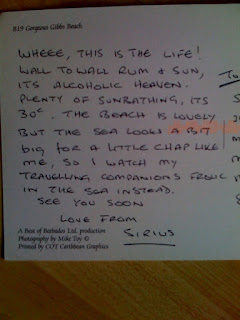 B19 Gorgeous Gibbs Beach
WHEEE, THIS IS THE LIFE!
WALL TO WALL RUM & SUN,
ITS ALCOHOLIC HEAVEN.
PLENTY OF SUNBATHING, ITS
30c. THE BEACH IS LOVELY
BUT THE SEA LOOKS A BIT
BIG FOR A LITTLE CHAP LIKE
ME, SO I WATCH MY
TRAVELLING COMPANIONS FROLIC
IN THE SEA INSTEAD.
SEE YOU SOON
LOVE FROM
SIRIUS
A Best of Barbados Ltd. production
Photography by Mike Toy ©
Printed by COT Caribbean Graphics